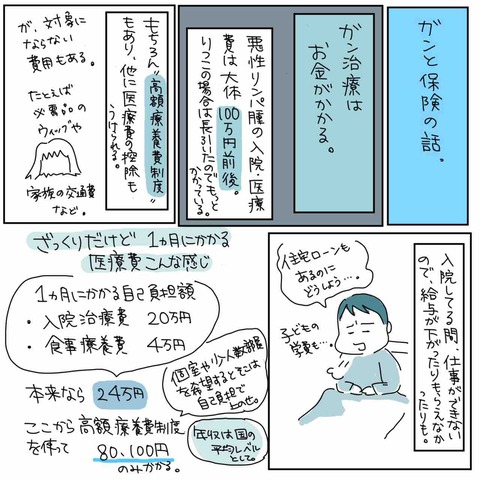 ガンと保険の話。
ガン治療は
お金がかかる。
悪性リンパ腫の入院・医療
費は大体100万円前後。
りつこの場合は長引いたのでもっと
かかっている。
もちろん"高額療養費制度"
もあり、他に医療費の控除も
うけられる。
が、対象に
ならない
費用もある。
たとえば
必需品の
ウィッグや
家族の交通費
など。
入院してる間、仕事ができない
ので、給与が下がったりもらえなか
ったりも。
住宅ローンも
あるのに
どうしよう…。
子どもの
学費も…
ざっくりだけど 1ヵ月にかかる
医療費こんな感じ
1ヵ月にかかる自己負担額
・入院治療費 20万円
・食事療養費 4万円
本来なら 24万円
個室や少人数部屋
を希望するときには
自己負担で
上のせ。
ここから高額療養費制度
を使って
80,100円
のみかかる。
年収は国の
平均レベル
として。